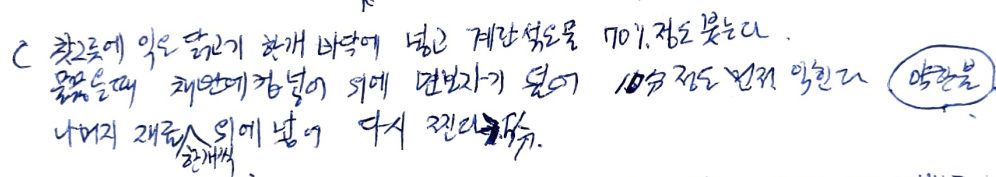 C 찻그릇에 익은 닭고기 한개 바닥에 넣고 계란석은물 70%정도 붓는다.
물끓을때 채반에 컵넣어 위에 면보자기 덮어 10分 정도 먼저 익힌다 약한불
나머지 재료 한개씩 위에 넣어 다시 찐다 5分.